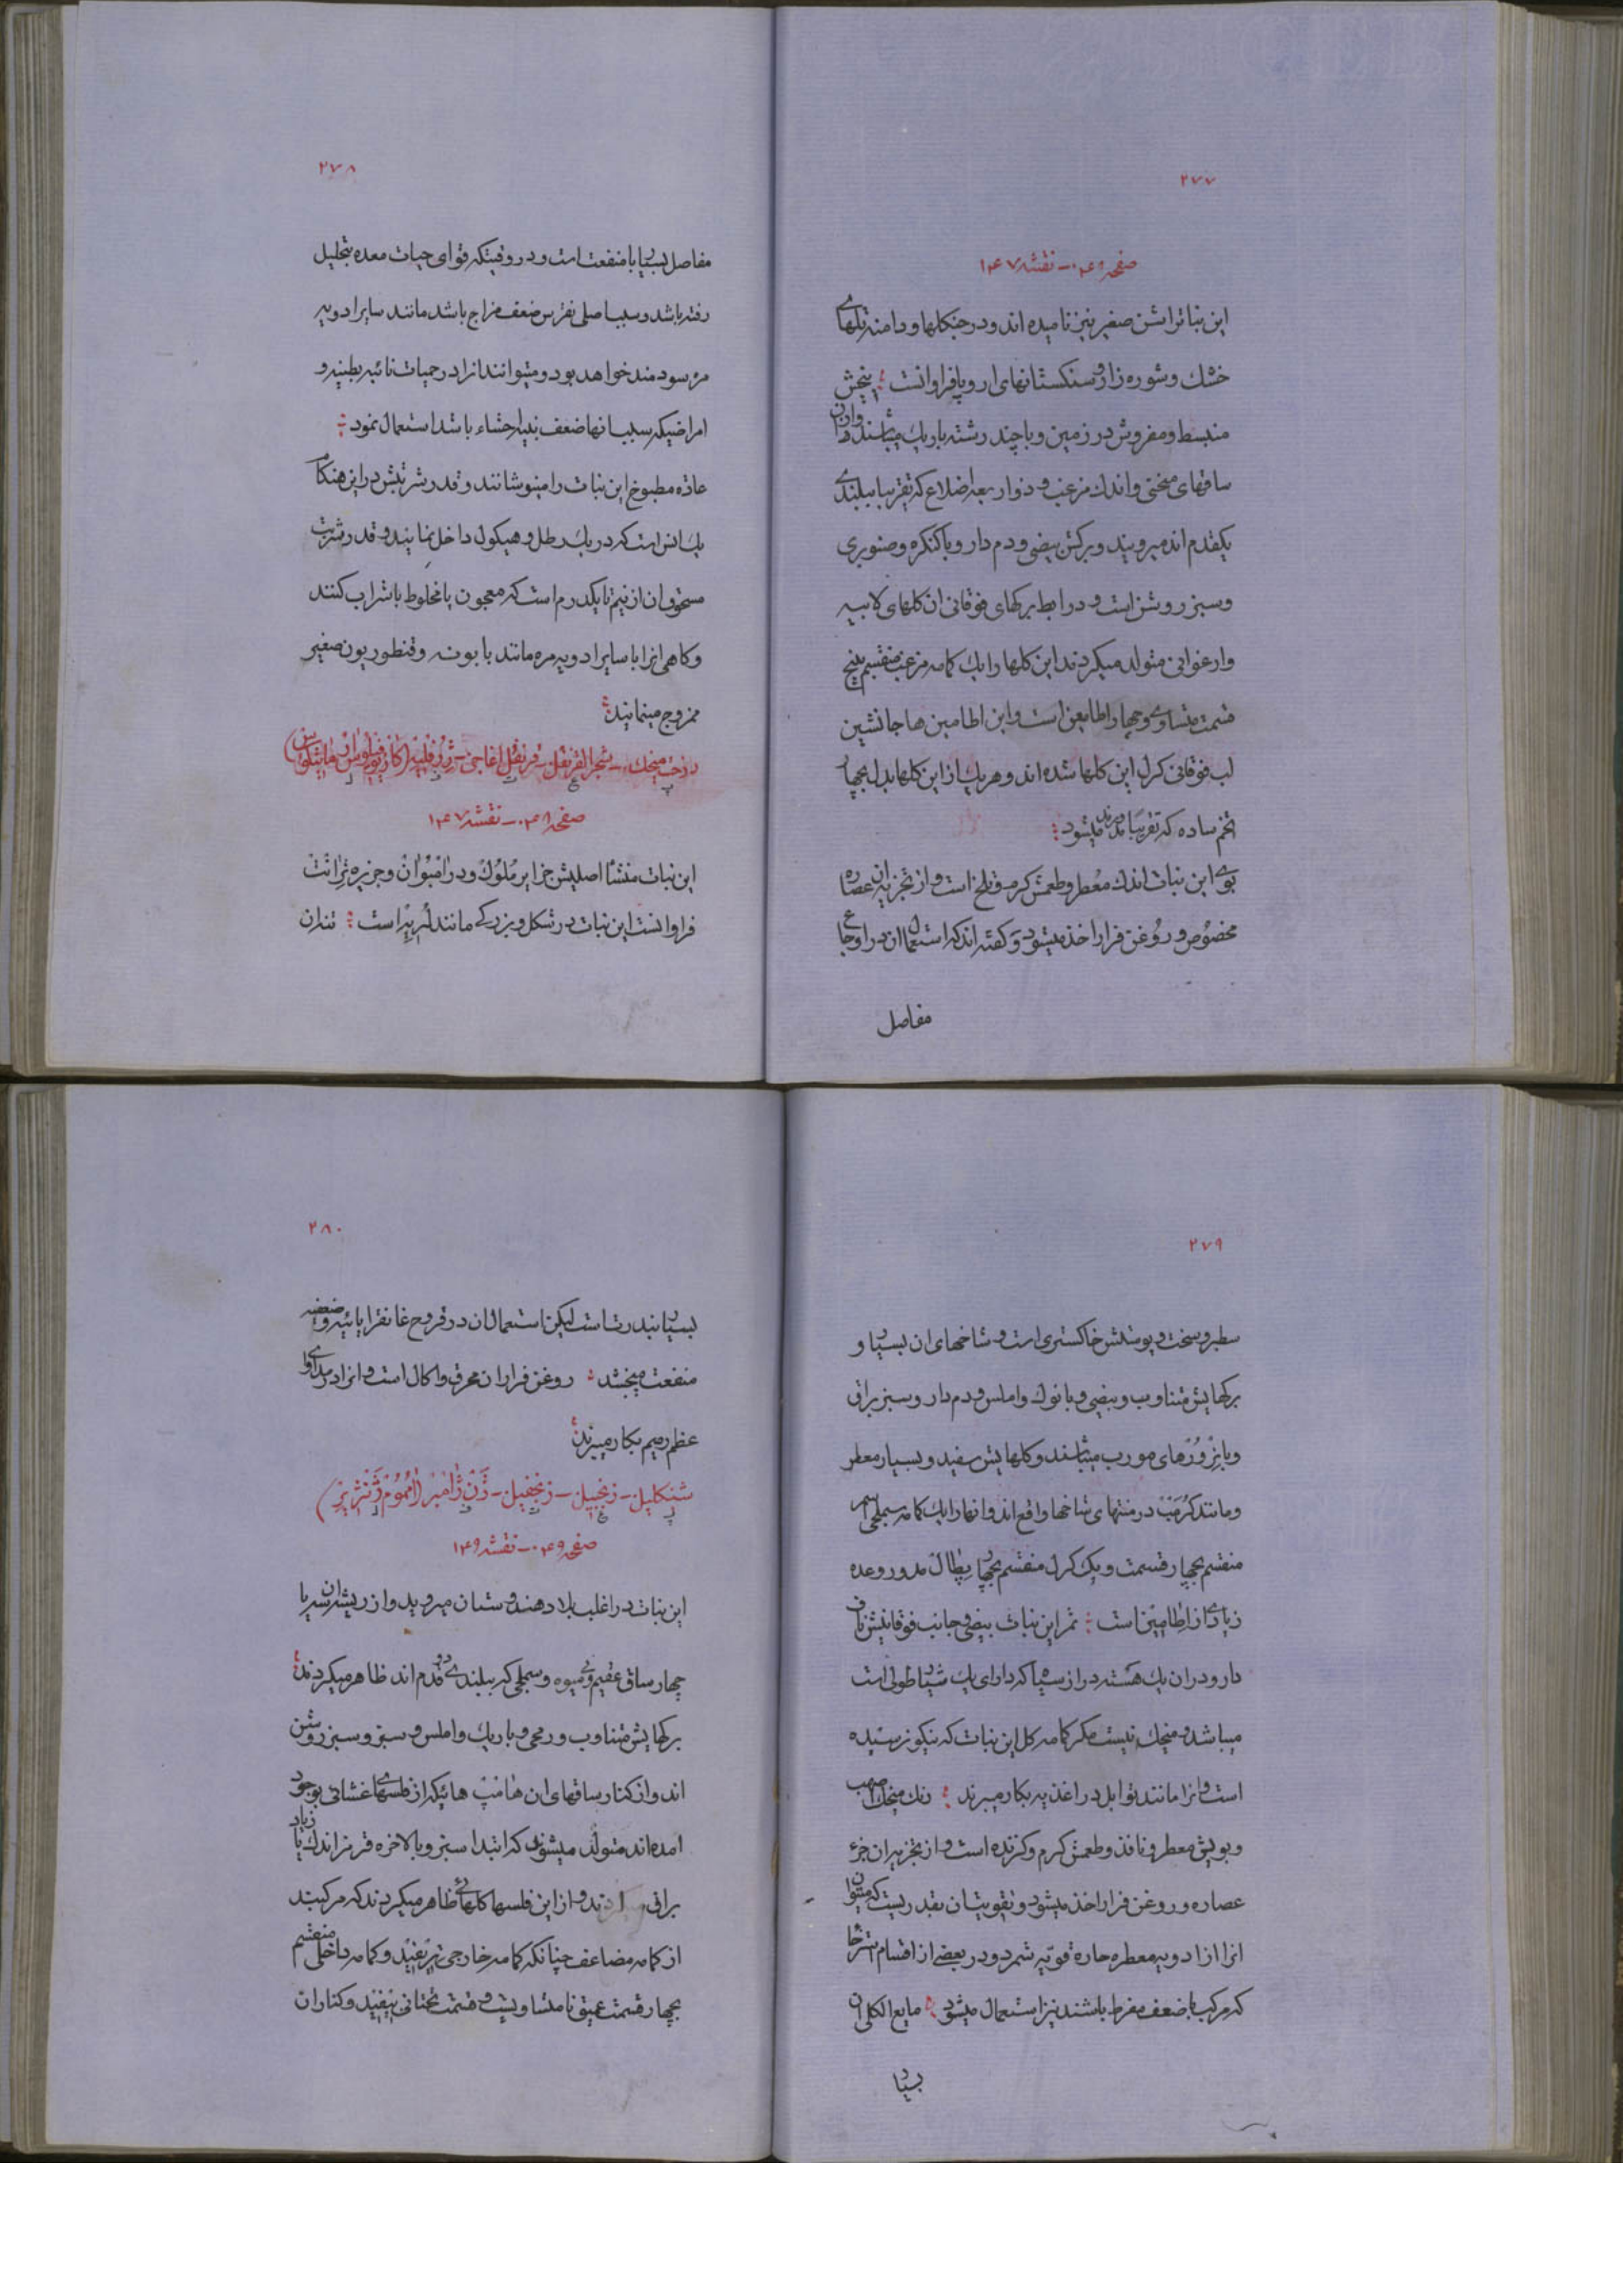 ۲۷۷
صفحه ۰۴۶ - نقشه ۱۴۷
این نباترا بشن صغیر نیز نامیده اند و در جنکلها و دامنه تلهای
خشك و شوره زار و سنکستانهای اروپا فراوانست ؛ بنجش
منبسط و مفروش در زمین و با چند رشته باریك میباشند و ازان
ساقهای منحنی و اندك مزغب و ذوار بعه اضلاع که تقریبا ببلندی
یکقدم اند میرویند و برکش بیضی و دم دار و با کنکره و صنوبری
و سبز روشن است و در ابط برکهای فوقانی ان کلهای لابیه
و ارغوانی متولد میکردند این کلها را یك کامه مزغب منقسم بپنج
قسمت متساوی و چهار اطامین است و این اطامین ها جانشین
لب فوقانی کرل این کلها شده اند و هر یك از این کلها بدل بچهار
تخم ساده که تقریبًا مدورند میشود ؛
بوی این نبات اندك معطر و طعمش کرم و تلخ است و از تجزیه ان عصاره
مخصوص و روغن فرار اخذ میشود و کفته اند که استعمال ان در اوجاع
مفاصل
۲۷۸
مفاصل بسیار با منفعت است و در وقتیکه قوای حیات معده بتحلیل
رفته باشد و سبب اصلی نقرس ضعف مزاج باشد مانند سایر ادویه
مره سودمند خواهد بود و میتوانند انرا در حمیات نائبه بطیئه و
امراضیکه سبب انها ضعف بنیه احشاء باشد استعمال نمود ؛
عادة مطبوخ این نبات را مینوشانند و قدر شربتش در این هنکام
یك انس است که در یك رطل وهیکول داخل نمایند و قدر شربت
مسحوق ان از نیم تا یکدرم است که معجون یا مخلوط با شراب کنند
و کاهی انرا با سایر ادویه مره مانند بابونه و قنطوریون صغیر
ممزوج مینمایند ؛
درخت میخك - شجر القرنفل - قرنفل اغاجی - ژرفلیه (کاریوفیلوس ارماتیکوس)
صفحه ۰۴۸ - نقشه ۱۴۷
این نبات منشأ اصلیش جزایر ملوك و در امبوان و جزیره ترانت
فراوانست این نبات در شکل و بزرکی مانند لریه است ؛ تنه ان
۲۷۹
سطبر و سخت و پوستش خاکستری است و شاخهای ان بسیار و
برکهایش متناوب و بیضی و با نوك و املس و دم دار و سبز براق
و با نرورهای مورب میباشند و کلهایش سفید و بسیار معطر
و مانند کرمب در منتهای شاخها واقع اند و انها را یك کامه سملچی سر
منقسم بچهار قسمت و یك کرل منقسم بچهار پطال مدور و عده
زیادی از اطامین است ؛ ثمر این نبات بیضی و جانب فوقانیش ناف
دار و در ان یك هسته دراز سیاه که دارای یك شیار طولی است
میباشد و میخك نیست مکر کامه کل این نبات که نیکو نرسیده
است و انرا مانند توابل در اغذیه بکار میبرند ؛ رنك میخك اصهب
و بویش معطر و نافذ و طعمش کرم و کزنده است و از تجزیه ان جزء
عصاره و روغن فرار اخذ میشود و تقویت ان بقدریست که میتوان
انرا از ادویه معطره حاره قویه شمرد و در بعضی از اقسام استرخا
که مرکب با ضعف مفرط باشند نیز استعمال میشود ؛ مایع الکلی ان
بسیار
۲۸۰
بسیار بندرت است لیکن استعمال ان در قروح غانقرایائیه وضعفیه
منفعت میبخشد ؛ روغن فرار ان محرق و اکال است و انرا در مداوای
عظم رمیم بکار میبرند ؛
شنکلیل - زنجبیل - زنجفیل - ژن ژامبر (اممؤم ژنژیبر)
صفحه ۰۴۹ - نقشه ۱۴۹
این نبات در اغلب بلاد هندوستان میروید و از ریشه ان سه یا
چهار ساق عقیم و بی میوه و سملچی که ببلندی دو قدم اند ظاهر میکردند ؛
برکهایش متناوب و رمحی و باریك و املس و سبز و سبز روشن
اند و از کنار ساقهای ان هامپ هائیکه از فلسهای غشائی بوجود
امده اند متولد میشوند که ابتدا سبز و بالاخره قرمز اندك یا زیاد
براق میکردند و از این فلسها کلهائی ظاهر میکردند که مرکبند
از کامه مضاعف چنانکه کامه خارجی تریفید و کامه داخلی منقسم
بچهار قسمت عمیق نامتساویست و قسمت تحتانی بیفید و کنار ان